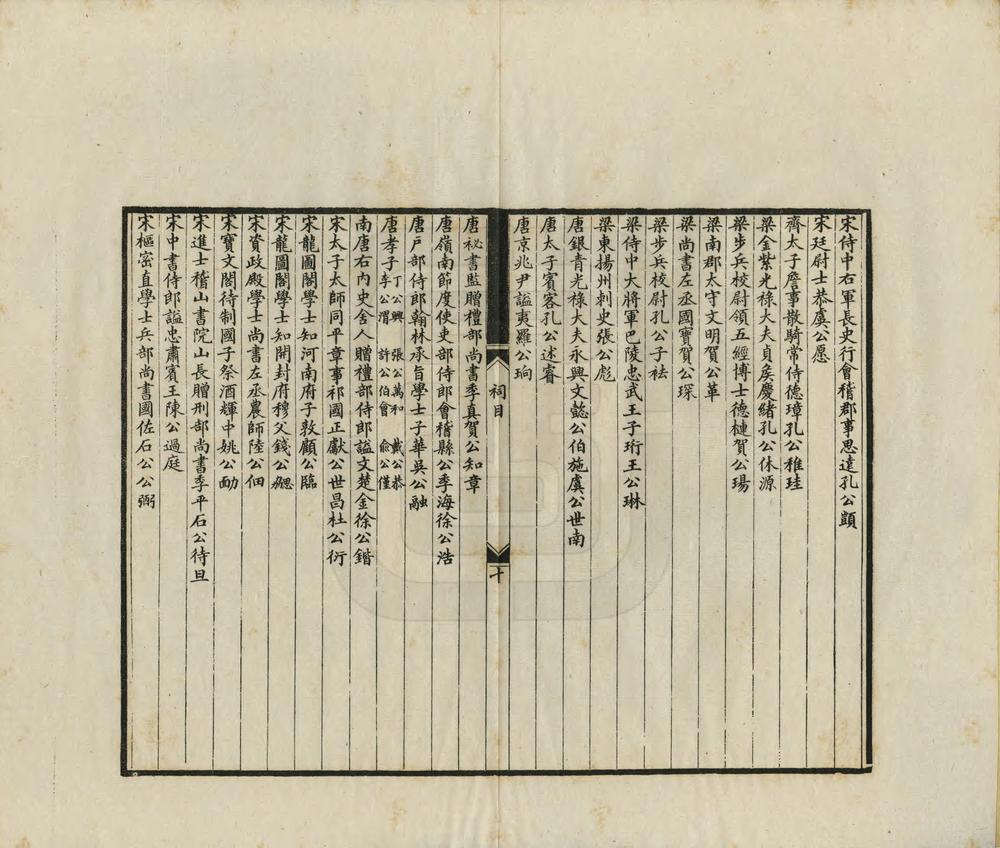 宋侍中右軍長史行會稽郡事思遠孔公顗
宋廷尉士恭虞公愿
齊太子詹事散騎常侍德璋孔公稚珪
梁金紫光祿大夫貞矦慶緒孔公休源
梁步兵校尉領五經博士德槤賀公瑒
梁南郡太守文明賀公革
梁尚書左丞國寶賀公琛
梁步兵校尉孔公子袪
梁侍中大將軍巴陵忠武王子珩王公琳
梁東揚州刺史張公彪
唐銀青光祿大夫永興文懿公伯施虞公世南
唐太子賓客孔公述睿
唐京兆尹謚夷羅公珦
祠目
十
唐秘書監贈禮部尚書季真賀公知章
唐嶺南節度使吏部侍郎會稽縣公季海徐公浩
唐戶部侍郎翰林承旨學士子華吳公融
唐孝子丁公興 張公萬和 戴公恭
李公渭 許公伯會 俞公僅
南唐右內史舍人贈禮部侍郎謚文楚金徐公鍇
宋太子太師同平章事祁國正獻公世昌杜公衍
宋龍圖閣學士知河南府子敦顧公臨
宋龍圖閣學士知開封府穆父錢公勰
宋資政殿學士尚書左丞農師陸公佃
宋寶文閣待制國子祭酒輝中姚公勔
宋進士稽山書院山長贈刑部尚書季平石公待旦
宋中書侍郎謚忠肅賓王陳公過庭
宋樞密直學士兵部尚書國佐石公公弼